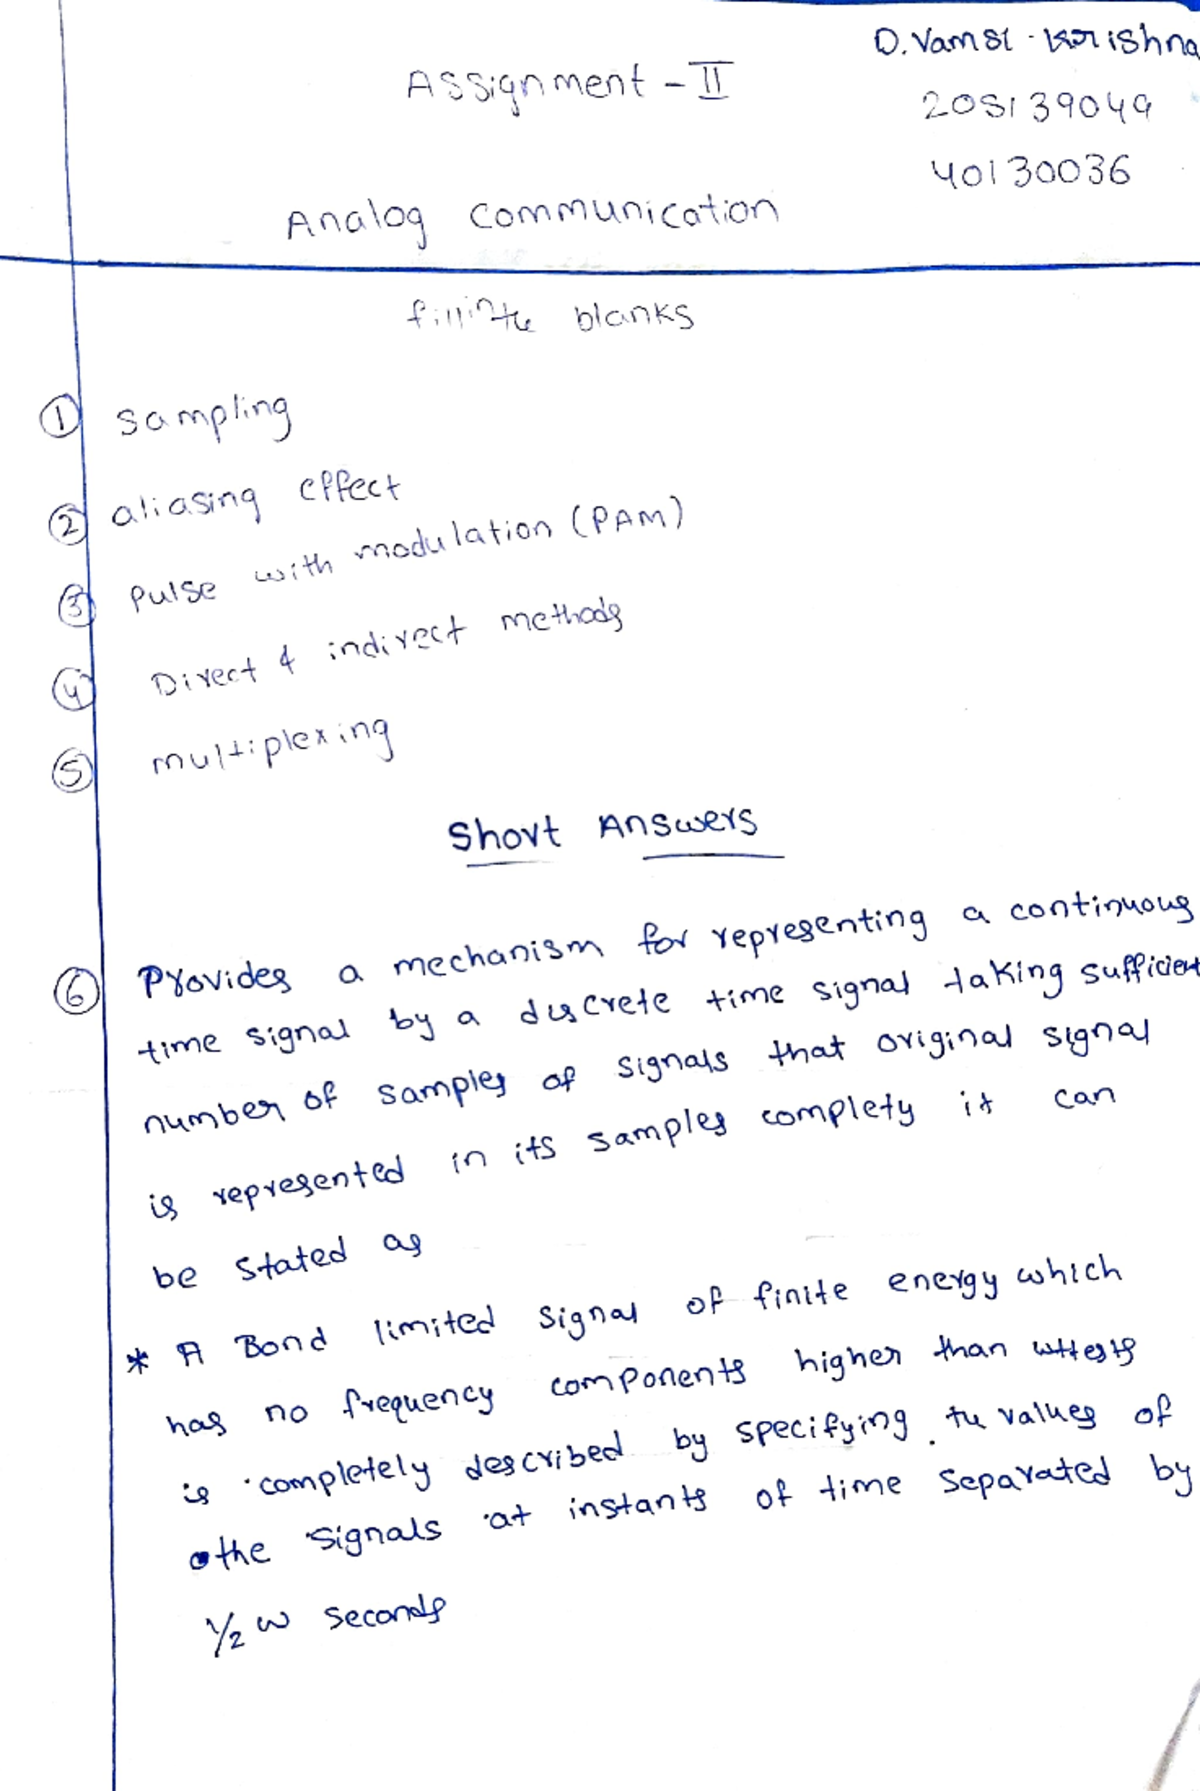 D. Vamsi Krishna
Assignment - II
208139049
40130036
Analog Communication
fill in the blanks
① Sampling
② aliasing effect
③ Pulse with modulation (PAM)
④ Direct & indirect methods
⑤ multiplexing
Short Answers
⑥ Provides a mechanism for representing a continuous
time signal by a discrete time signal taking sufficient
number of samples of signals that original signal
is represented in its samples complety it can
be stated as
* A Bond limited signal of finite energy which
has no frequency components higher than
is completely described by specifying the values of
the signals at instants of time separated by
1/2 w seconds